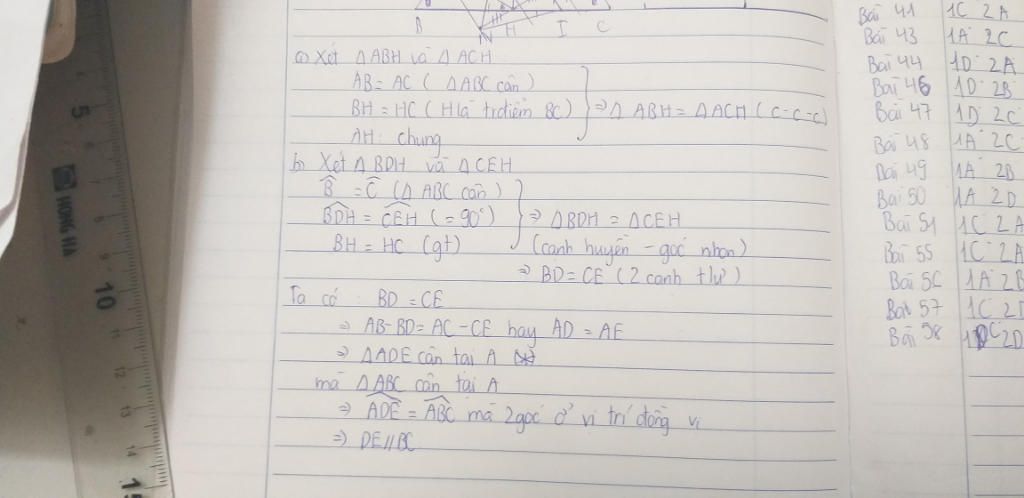 B N H I C
a) Xét ΔABH và ΔACH
AB = AC (ΔABC cân)
BH = HC (H là trđiểm BC) ⇒ Δ ABH = ΔACH (c-c-c)
AH: chung
b) Xét ΔBDH và ΔCEH
B̂ = Ĉ (Δ ABC cân)
BDH = CEH (= 90°) ⇒ ΔBDH = ΔCEH
BH = HC (gt) (cạnh huyền - góc nhọn)
⇒ BD = CE (2 cạnh tư)
Ta có : BD = CE
⇒ AB-BD = AC-CE hay AD = AE
⇒ ΔADE cân tại A
mà ΔABC cân tại A
⇒ ADE = ABC mà 2 góc ở vị trí đồng vị
⇒ DE//BC
Bài 41 1C 2A
Bài 43 1A 2C
Bài 44 1D 2A
Bài 46 1D 2B
Bài 47 1D 2C
Bài 48 1A 2C
Bài 49 1A 2B
Bài 50 1A 2D
Bài 51 1C 2A
Bài 55 1C 2A
Bài 56 1A 2B
Bài 57 1C 2D
Bài 58 1C 2D
HONG HA
5
9
10
11
12
13
14
15